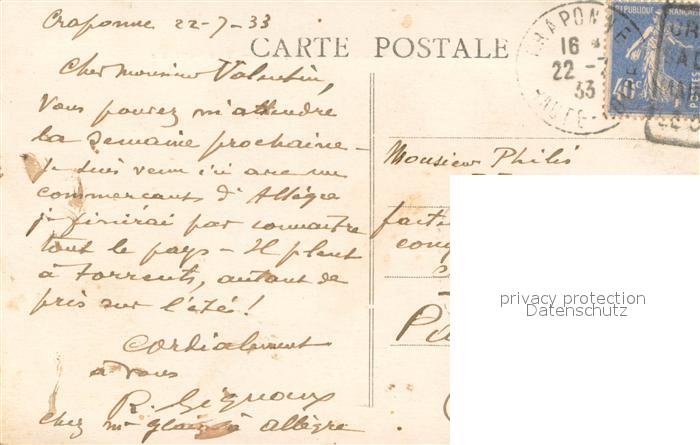 Craponne 22-7-33
CARTE POSTALE
Cher monsieur Valentin,
Vous pouvez m'attendre
la semaine prochaine -
Je suis venu ici avec un
commerçant d'Allègre
je finirai par connaître
tout le pays - Il pleut
à torrents, autant de
pris sur l'été !
Cordialement
à vous
R. Gignoux
Chez Mr à Allègre
CRAPONNE
16
22 -7
33
40c
POSTES
Monsieur Philis
privacy protection
Datenschutz